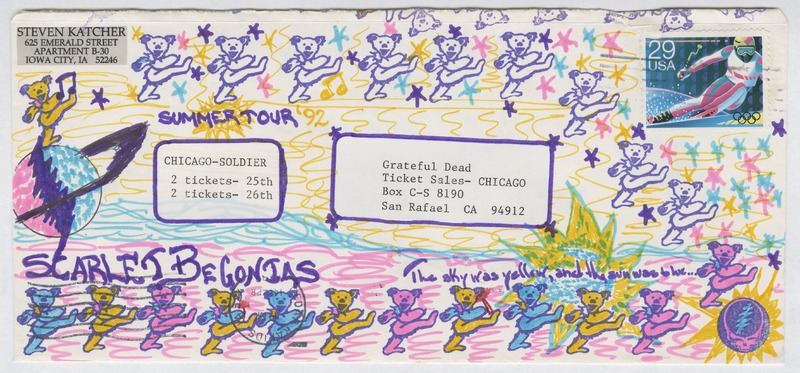 STEVEN KATCHER
625 EMERALD STREET
APARTMENT B-30
IOWA CITY, IA 52246
29
USA
SUMMER TOUR '92
CHICAGO-SOLDIER
2 tickets- 25th
2 tickets- 26th
Grateful Dead
Ticket Sales- CHICAGO
Box C-S 8190
San Rafael CA 94912
SCARLET BEGONIAS
The sky was yellow, and the sun was blue...